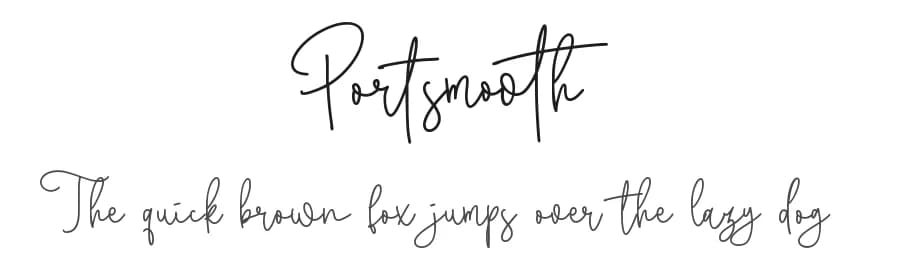 Portsmooth
The quick brown fox jumps over the lazy dog